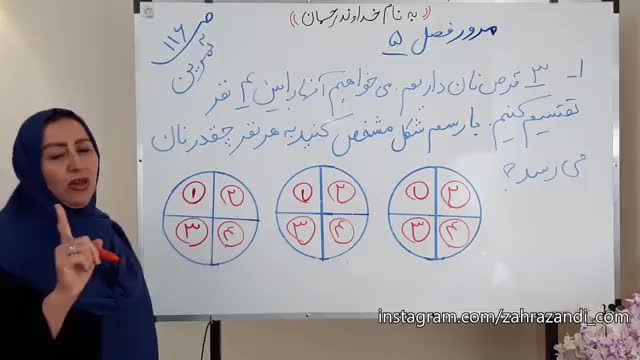 ((به نام خداوند رحمان))
مرور فصل ۵
ص ۱۱۶
تمرین
۱- ۳ قرص نان داریم. می خواهیم آنها را بین ۴ نفر
تقسیم کنیم. با رسم شکل مشخص کنید به هر نفر چقدر نان
می رسد؟
۱ ۲ ۱ ۲ ۱ ۲
۳ ۴ ۳ ۴ ۳ ۴
instagram.com/zahrazandi_com